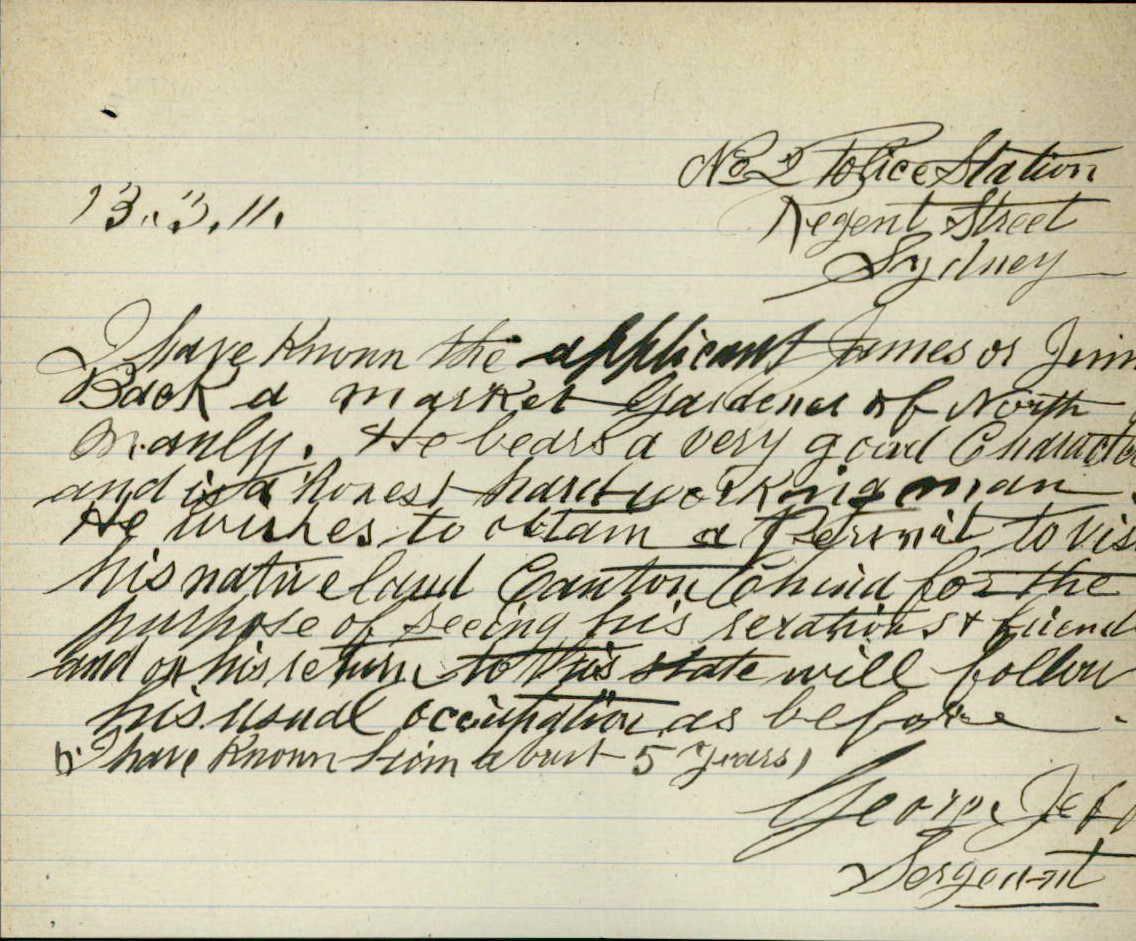 No 2 Police Station
13.3.11.
Regent Street
Sydney
I have Known the applicant James or Jim
Back a market Gardener of North
Manly. He bears a very good Character
and is a honest hard working man.
He wishes to obtain a Permit to vis
his native land Canton China for the
purpose of seeing his relations & friend
and on his return to this state will follow
his usual occupation as before.
I have Known him about 5 years)
George Jeff
Sergeant